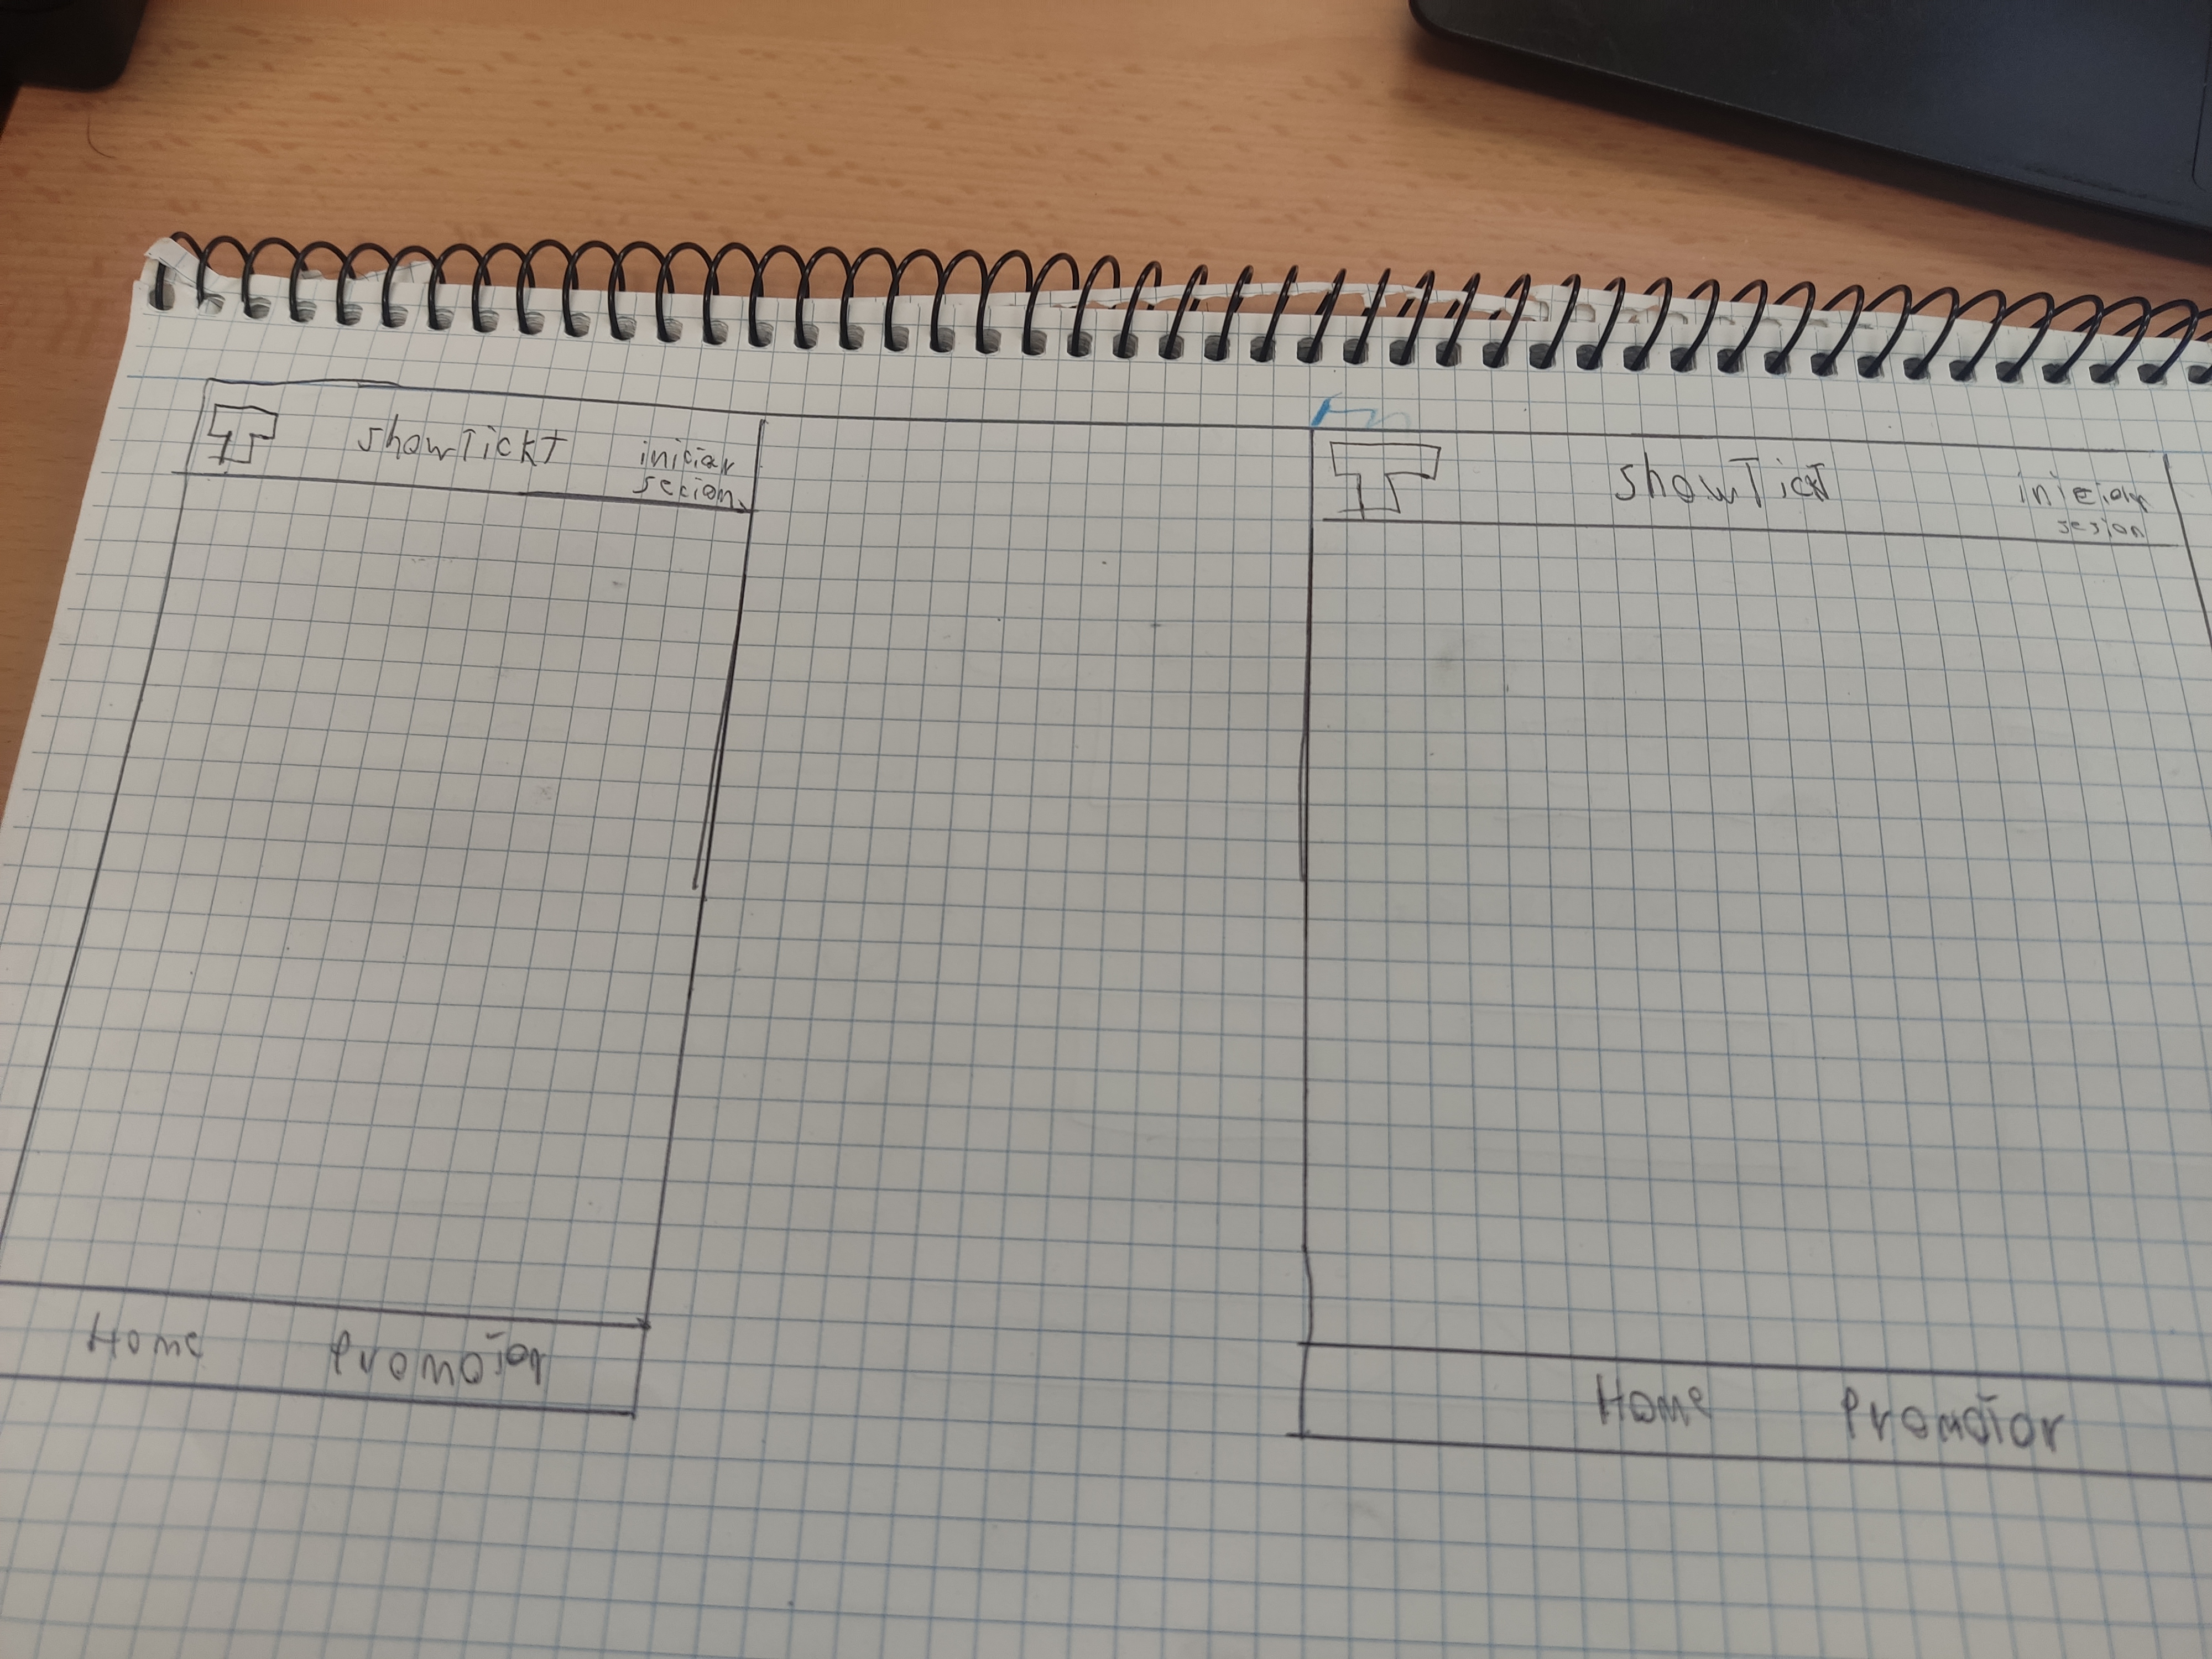 T
showTickt
iniciar
secion
Home
Promotor
T
showTickt
iniciar
sesion
Home
Promotor